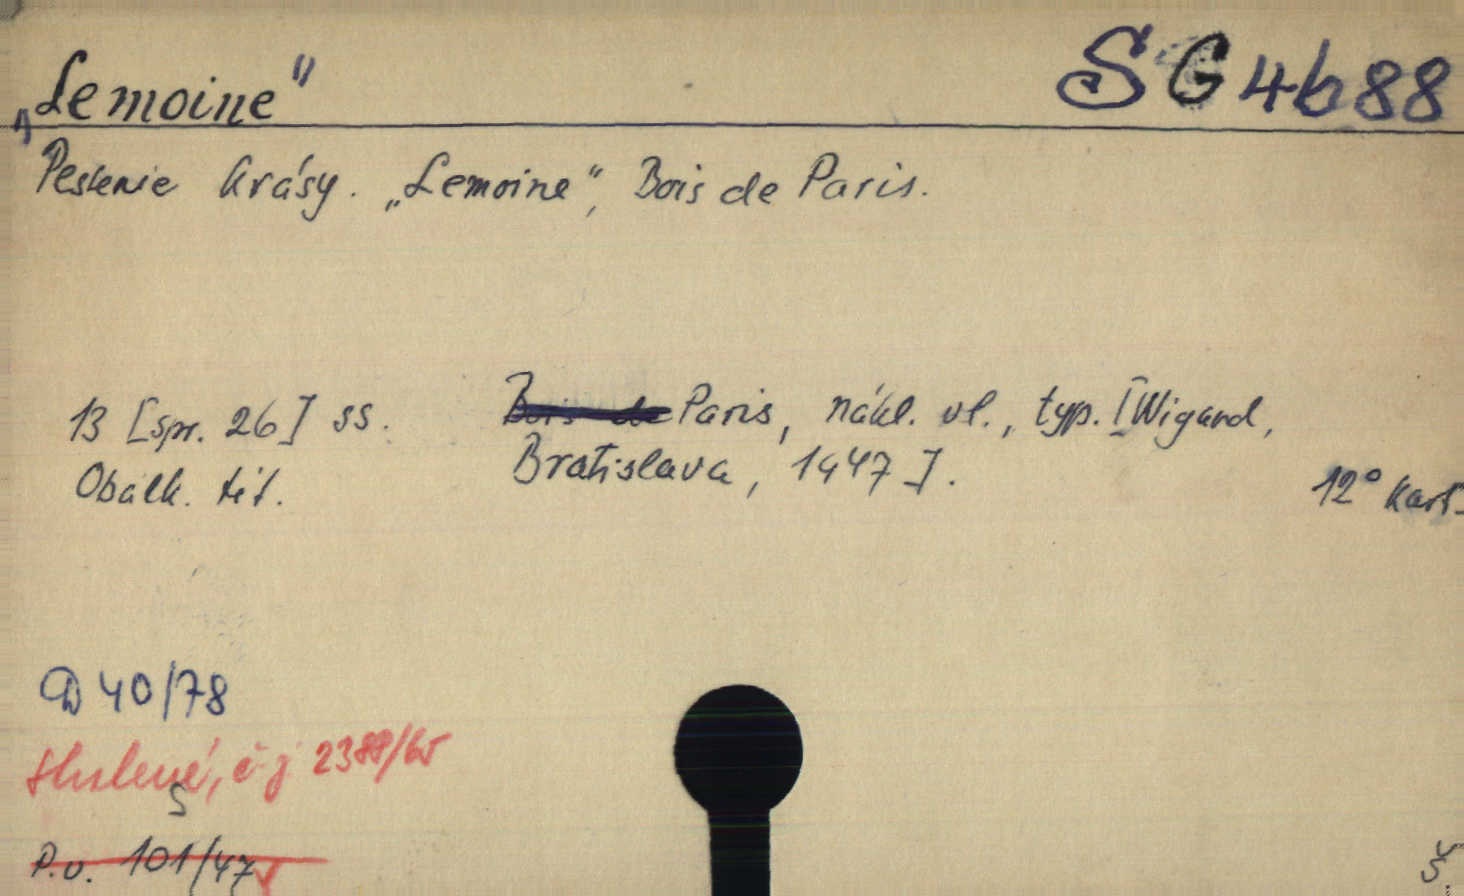 „Lemoine" SG 4688
Pestenie krásy. „Lemoine", Bois de Paris.
13 [spr. 26] ss. Bois de Paris, nákl. vl., typ. [Wigand,
Obálk. tit. Bratislava, 1947].
12° Kart.
D 40/78
č j 2388/65
S
P.v. 101/47
Š.